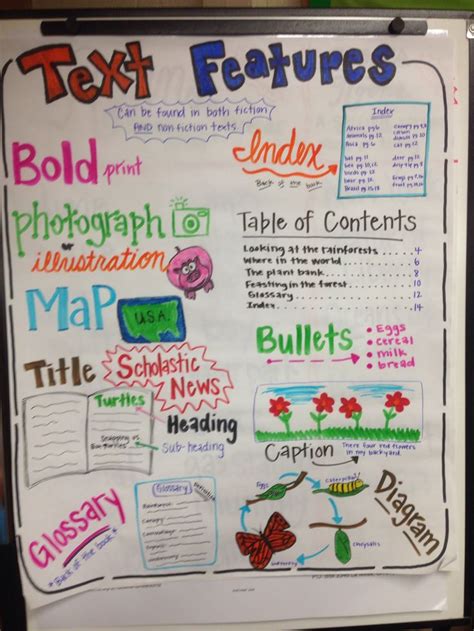 Text Features
Can be found in both fiction
AND non fiction texts.
Bold print
Index
Back of the book
Index
Africa pg.6
animals pg.12
Bark pg.
bat pg.11
beetle pg.11
birds pg.
bear pg.
Brazil pg.
canopy pg.
carbon
dioxide pg.
deer pg.
drip tip pg.
Emergent pg.
frog pg.
fruit pg.
photograph
or
illustration
Table of Contents
Looking at the rainforests . . . . 4
Where in the world . . . . 6
The plant bank . . . . 8
Feasting in the forest . . . . 10
Glossary . . . . 12
Index . . . . 14
Map
U.S.A.
Bullets
• Eggs
• cereal
• milk
• bread
Title
Scholastic
News
Turtles
Snapping vs
Box Turtles
Heading
Sub-heading
Caption
There four red flowers
in my backyard
Glossary
*Back of the book*
Glossary
Rainforest:
Canopy:
Camouflage:
Organic:
Diagram
Eggs
caterpillar
chrysalis
butterfly